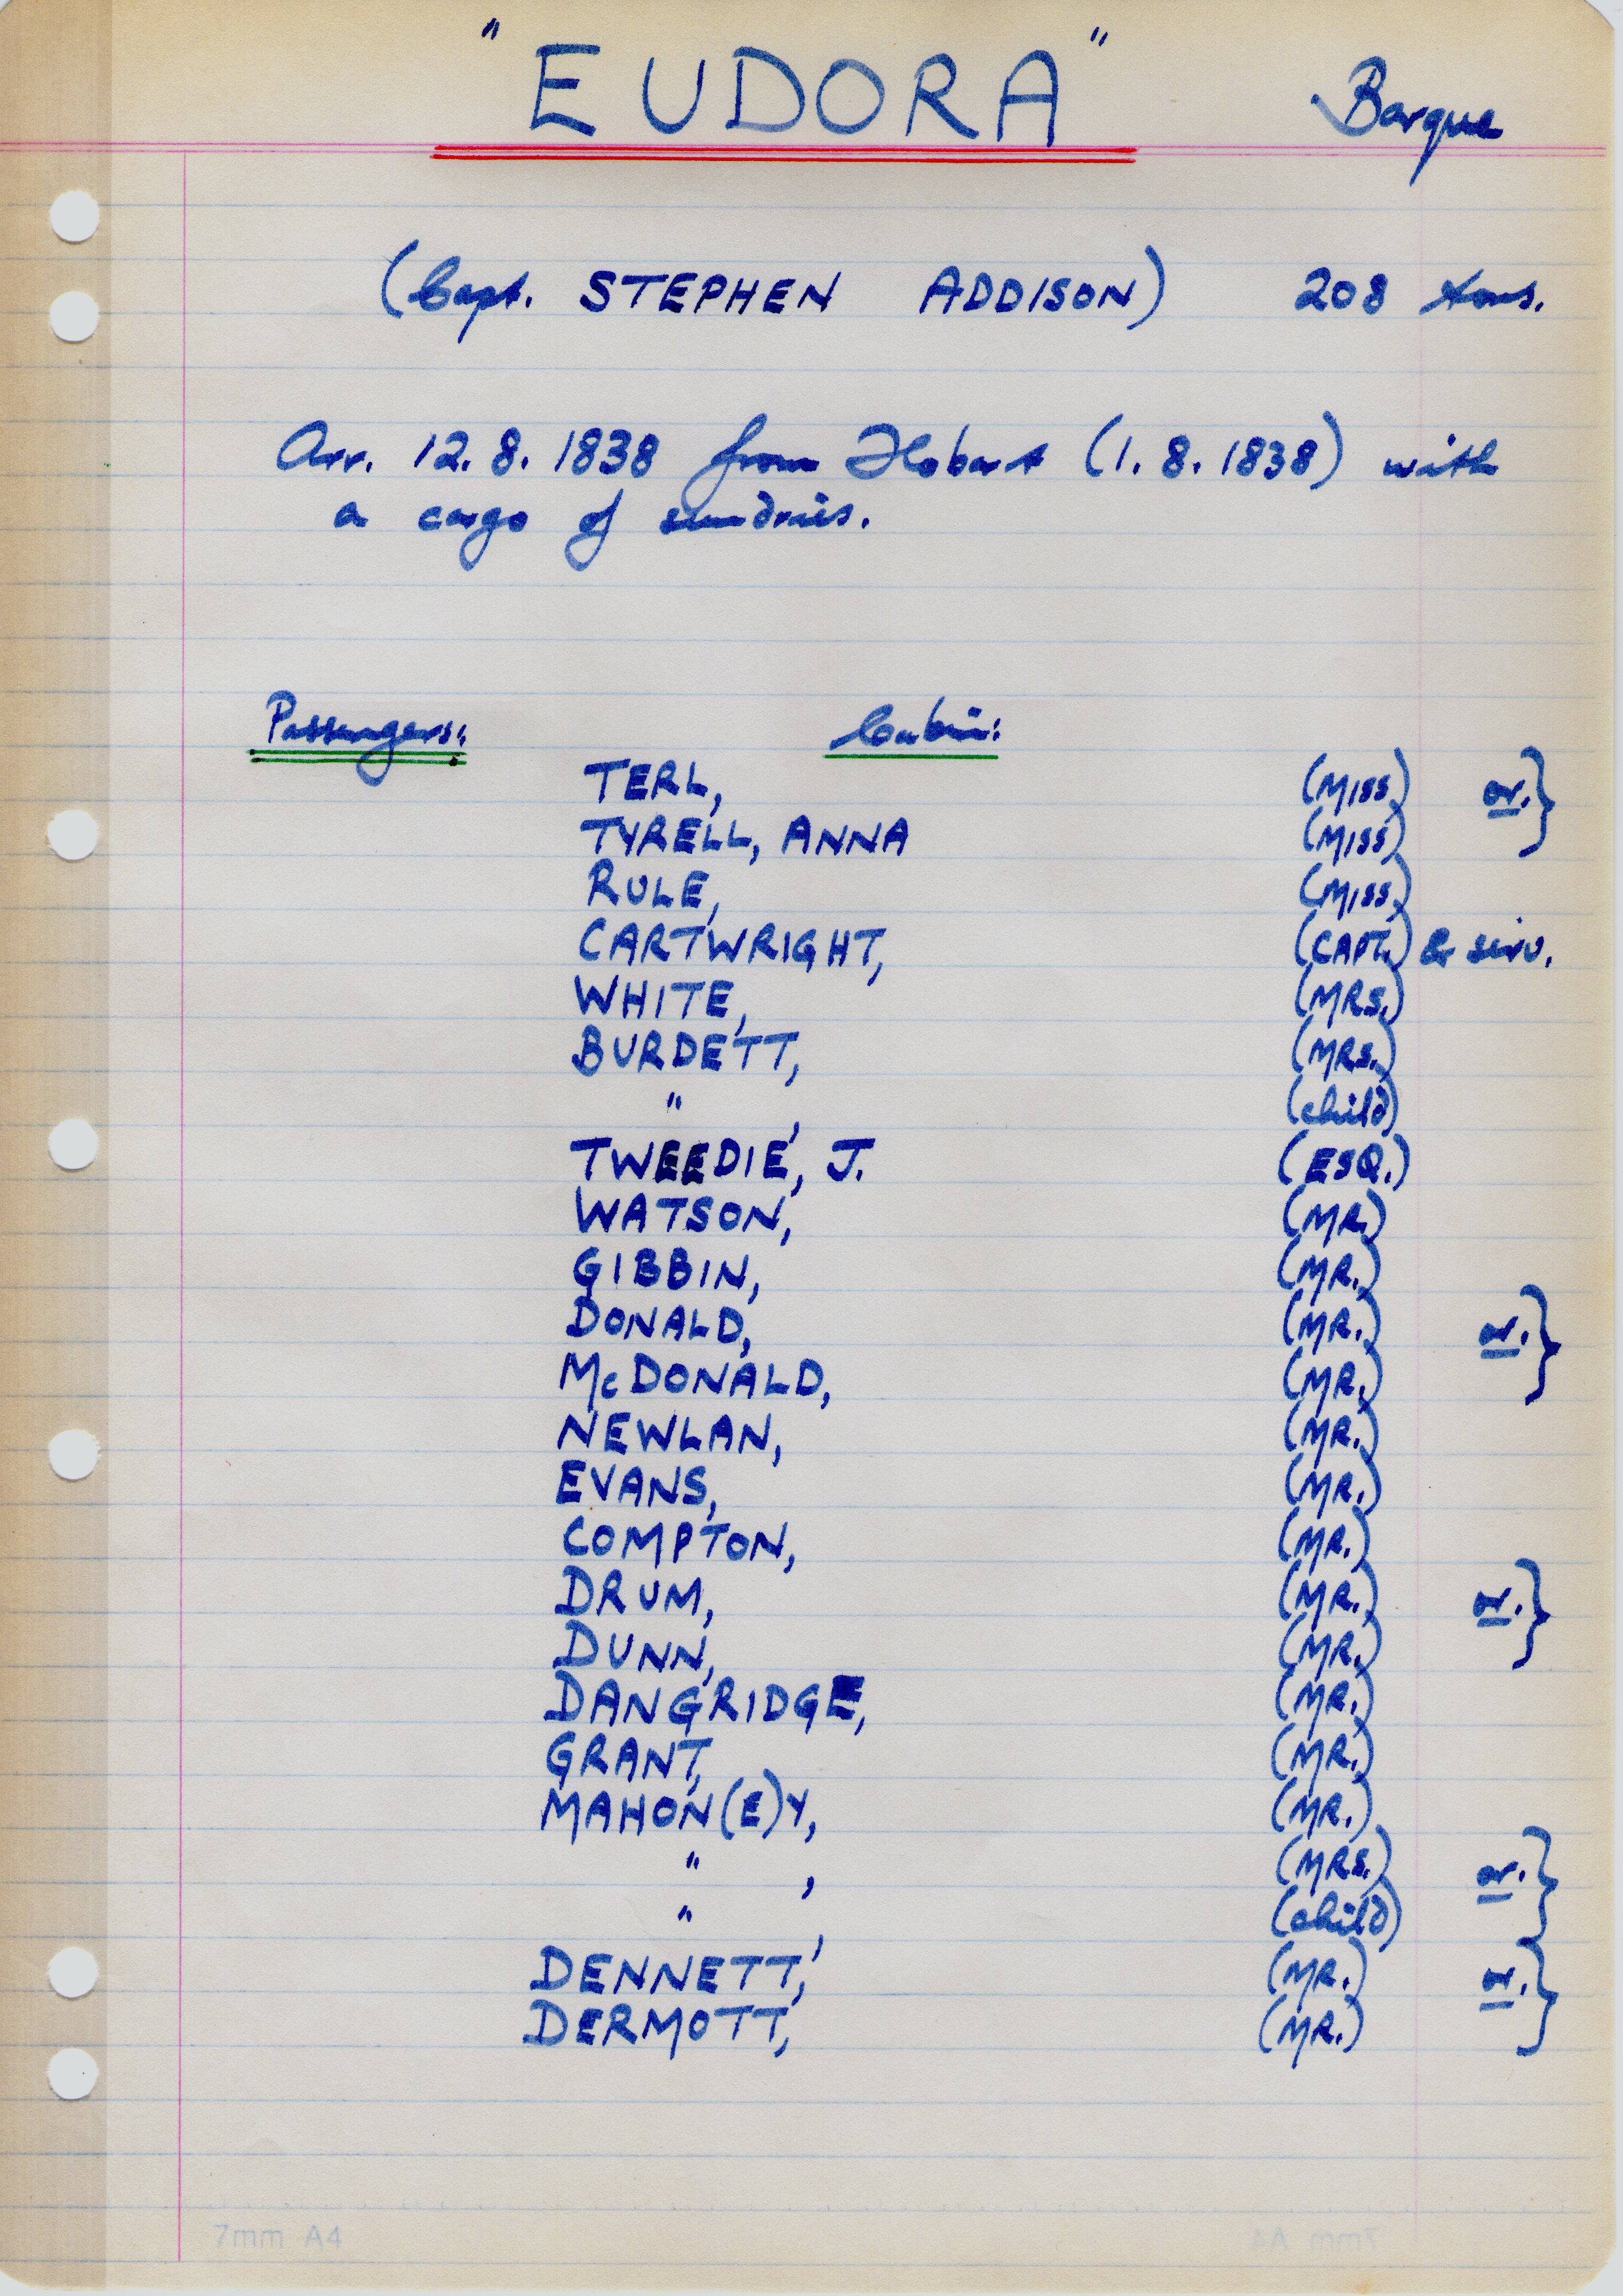 "EUDORA" Barque
(Capt. STEPHEN ADDISON) 208 tons.
Arr. 12.8.1838 from Hobart (1.8.1838) with
a cargo of sundries.
Passengers: Cabin:
TERL, (MISS) or.}
TYRELL, ANNA (MISS)
RULE, (MISS)
CARTWRIGHT, (CAPT.) & serv.
WHITE, (MRS.)
BURDETT, (MRS.)
" , (child)
TWEEDIE, J. (ESQ.)
WATSON, (MR.)
GIBBIN, (MR.)
DONALD, (MR.) or.}
McDONALD, (MR.)
NEWLAN, (MR.)
EVANS, (MR.)
COMPTON, (MR.)
DRUM, (MR.) or.}
DUNN, (MR.)
DANGRIDGE, (MR.)
GRANT, (MR.)
MAHON(E)Y, (MR.)
" , (MRS.) or.}
" , (child)
DENNETT, (MR.) or.}
DERMOTT, (MR.)
7mm A4